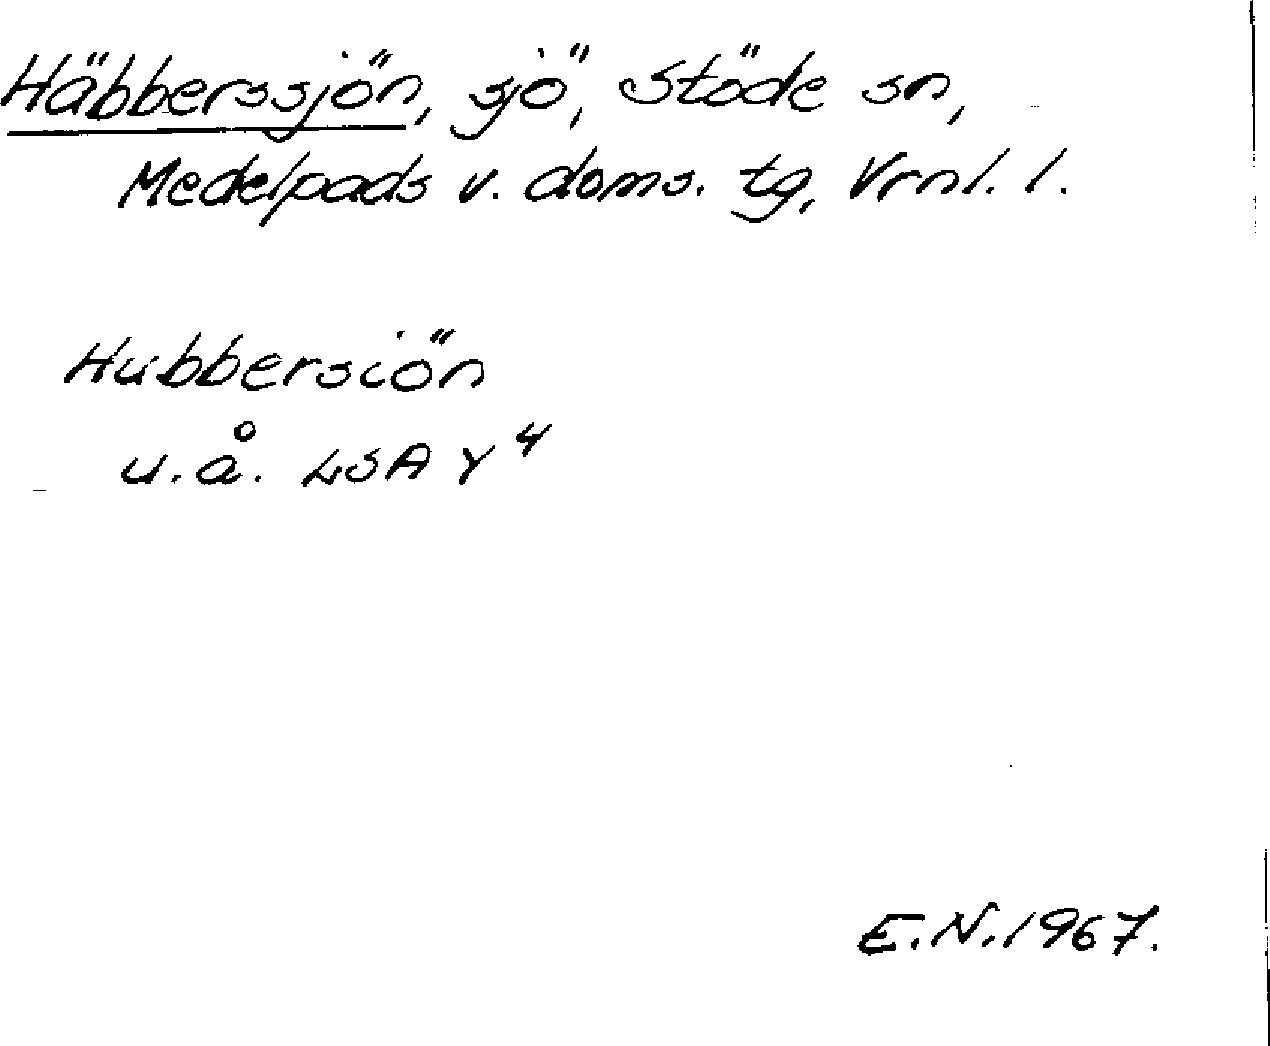 Häbberssjön, sjö, Stöde sn,
Medelpads v. doms. tg, Vrnl. l.
Hubbersiön
u.å. LSA Y 4
E.N. 1967.